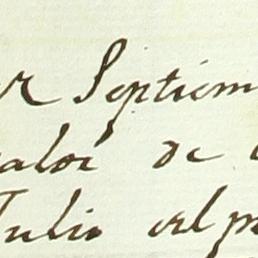 Septiem
valor de
Julio al p